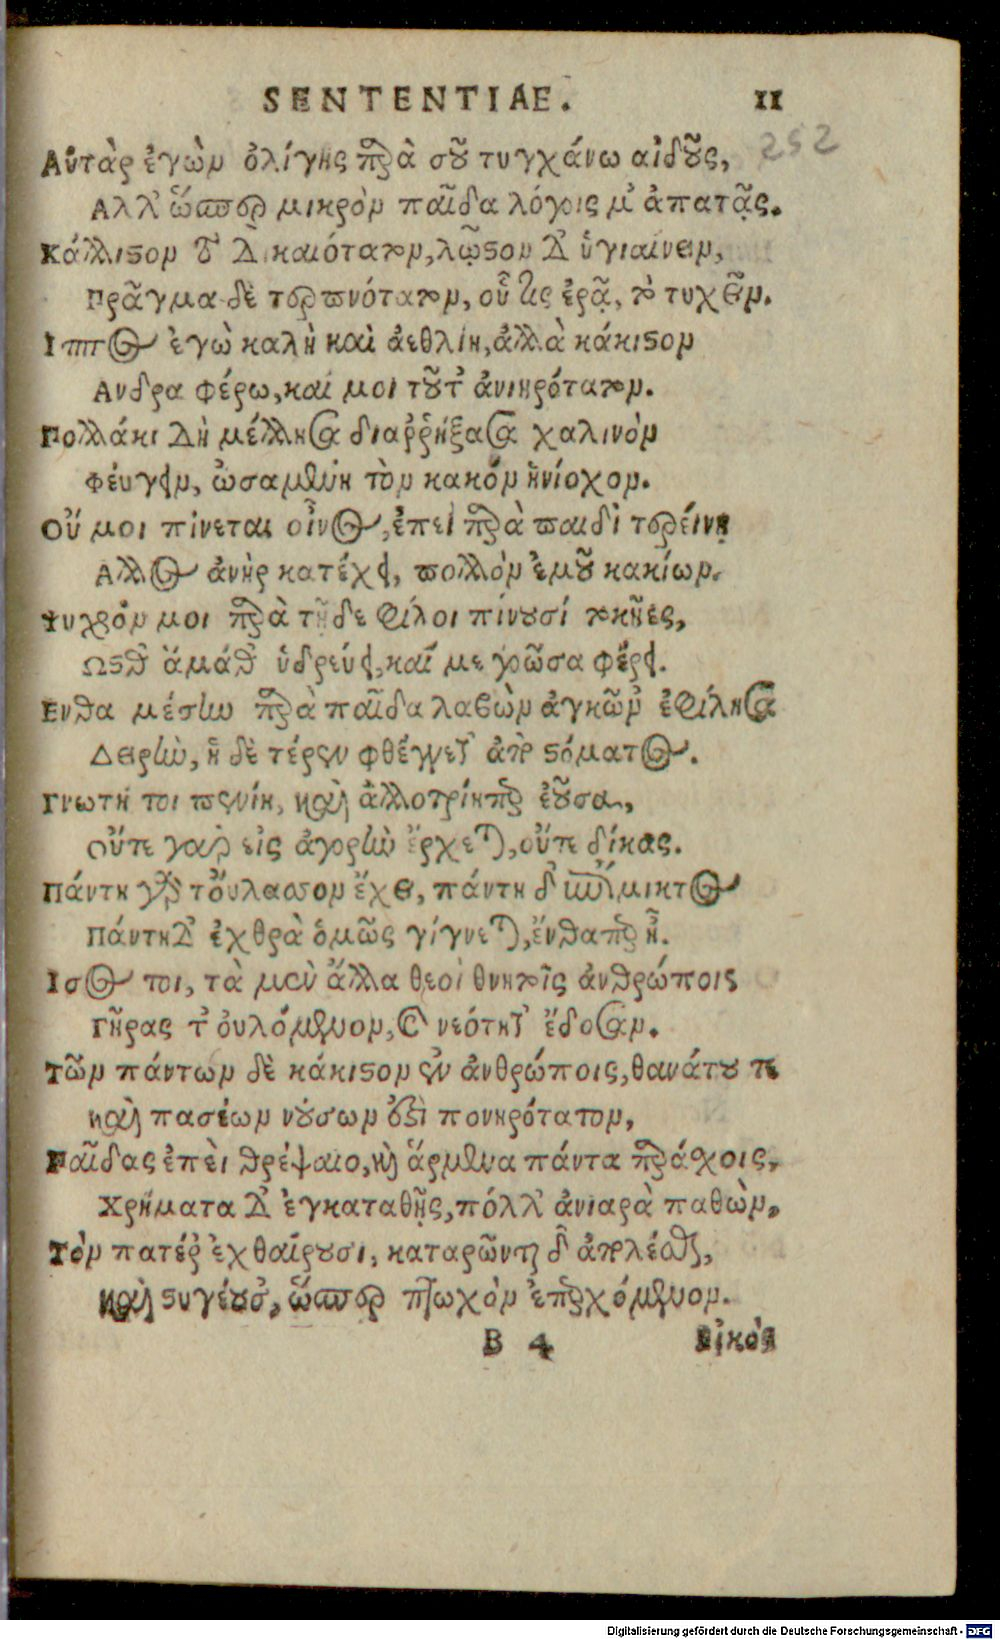 SENTENTIAE. 11
252
Αὐτὰρ ἐγὼν ὀλίγης παρὰ σοῦ τυγχάνω αἰδοῦς,
Αλλ' ὥσπερ μικρὸν παῖδα λόγοις μ' ἀπατᾷς.
Κάλλιστον τὸ δικαιότατον, λῷστον δ' ὑγιαίνειν,
Πρᾶγμα δὲ τερπνότατον, οὗ τις ἐρᾷ, τὸ τυχεῖν.
Ιππος ἐγὼ καλὴ καὶ ἀεθλίη, ἀλλὰ κάκιστον
Ανδρα φέρω, καί μοι τοῦτ' ἀνιηρότατον.
Πολλάκι δὴ μέλλησα διαῤῥήξασα χαλινὸν
Φεύγειν, ὠσαμένη τὸν κακὸν ἡνίοχον.
Οὔ μοι πίνεται οἶνος, ἐπεὶ παρὰ παιδὶ τερείνῃ
Αλλος ἀνὴρ κατέχει, πολλὸν ἐμοῦ κακίων.
Ψυχρόν μοι παρὰ τῇδε φίλοι πίνουσί τοκῆες,
Ωσθ' ἅμάθ' ὑδρεύει, καί με γοῶσα φέρει.
Ενθα μέσην παρὰ παῖδα λαβὼν ἀγκῶν' ἐφίλησα
Δειρὴν, ἡ δὲ τέρεν φθέγγετ' ἀπὸ στόματος.
Γνωτή τοι πενίη, καὶ ἀλλοτρίη περ ἐοῦσα,
Οὔτε γὰρ εἰς ἀγορὴν ἔρχεται, οὔτε δίκας.
Πάντη γὰρ τοὔλασσον ἔχει, πάντη δ' ἐπίμικτος
Πάντη δ' ἐχθρὰ ὁμῶς γίγνεται, ἔνθα περ ᾖ.
Ισος τοι, τὰ μὲν ἄλλα θεοὶ θνητοῖς ἀνθρώποις
Γῆρας τ' οὐλόμενον, καὶ νεότητ' ἔδοσαν.
Τῶν πάντων δὲ κάκιστον ἐν ἀνθρώποις, θανάτου τε
καὶ πασέων νούσων ἐστὶ πονηρότατον,
Παῖδας ἐπεὶ θρέψαιο, καὶ ἅρμενα πάντα παράσχοις,
Χρήματα δ' ἐγκαταθῇς, πόλλ' ἀνιαρὰ παθὼν,
Τὸν πατέρ' ἐχθαίρουσι, καταρῶνται δ' ἀπολέσθαι,
καὶ στυγέουσ', ὥσπερ πτωχὸν ἐπερχόμενον.
B 4 Εἰκὸς
Digitalisierung gefördert durch die Deutsche Forschungsgemeinschaft - DFG